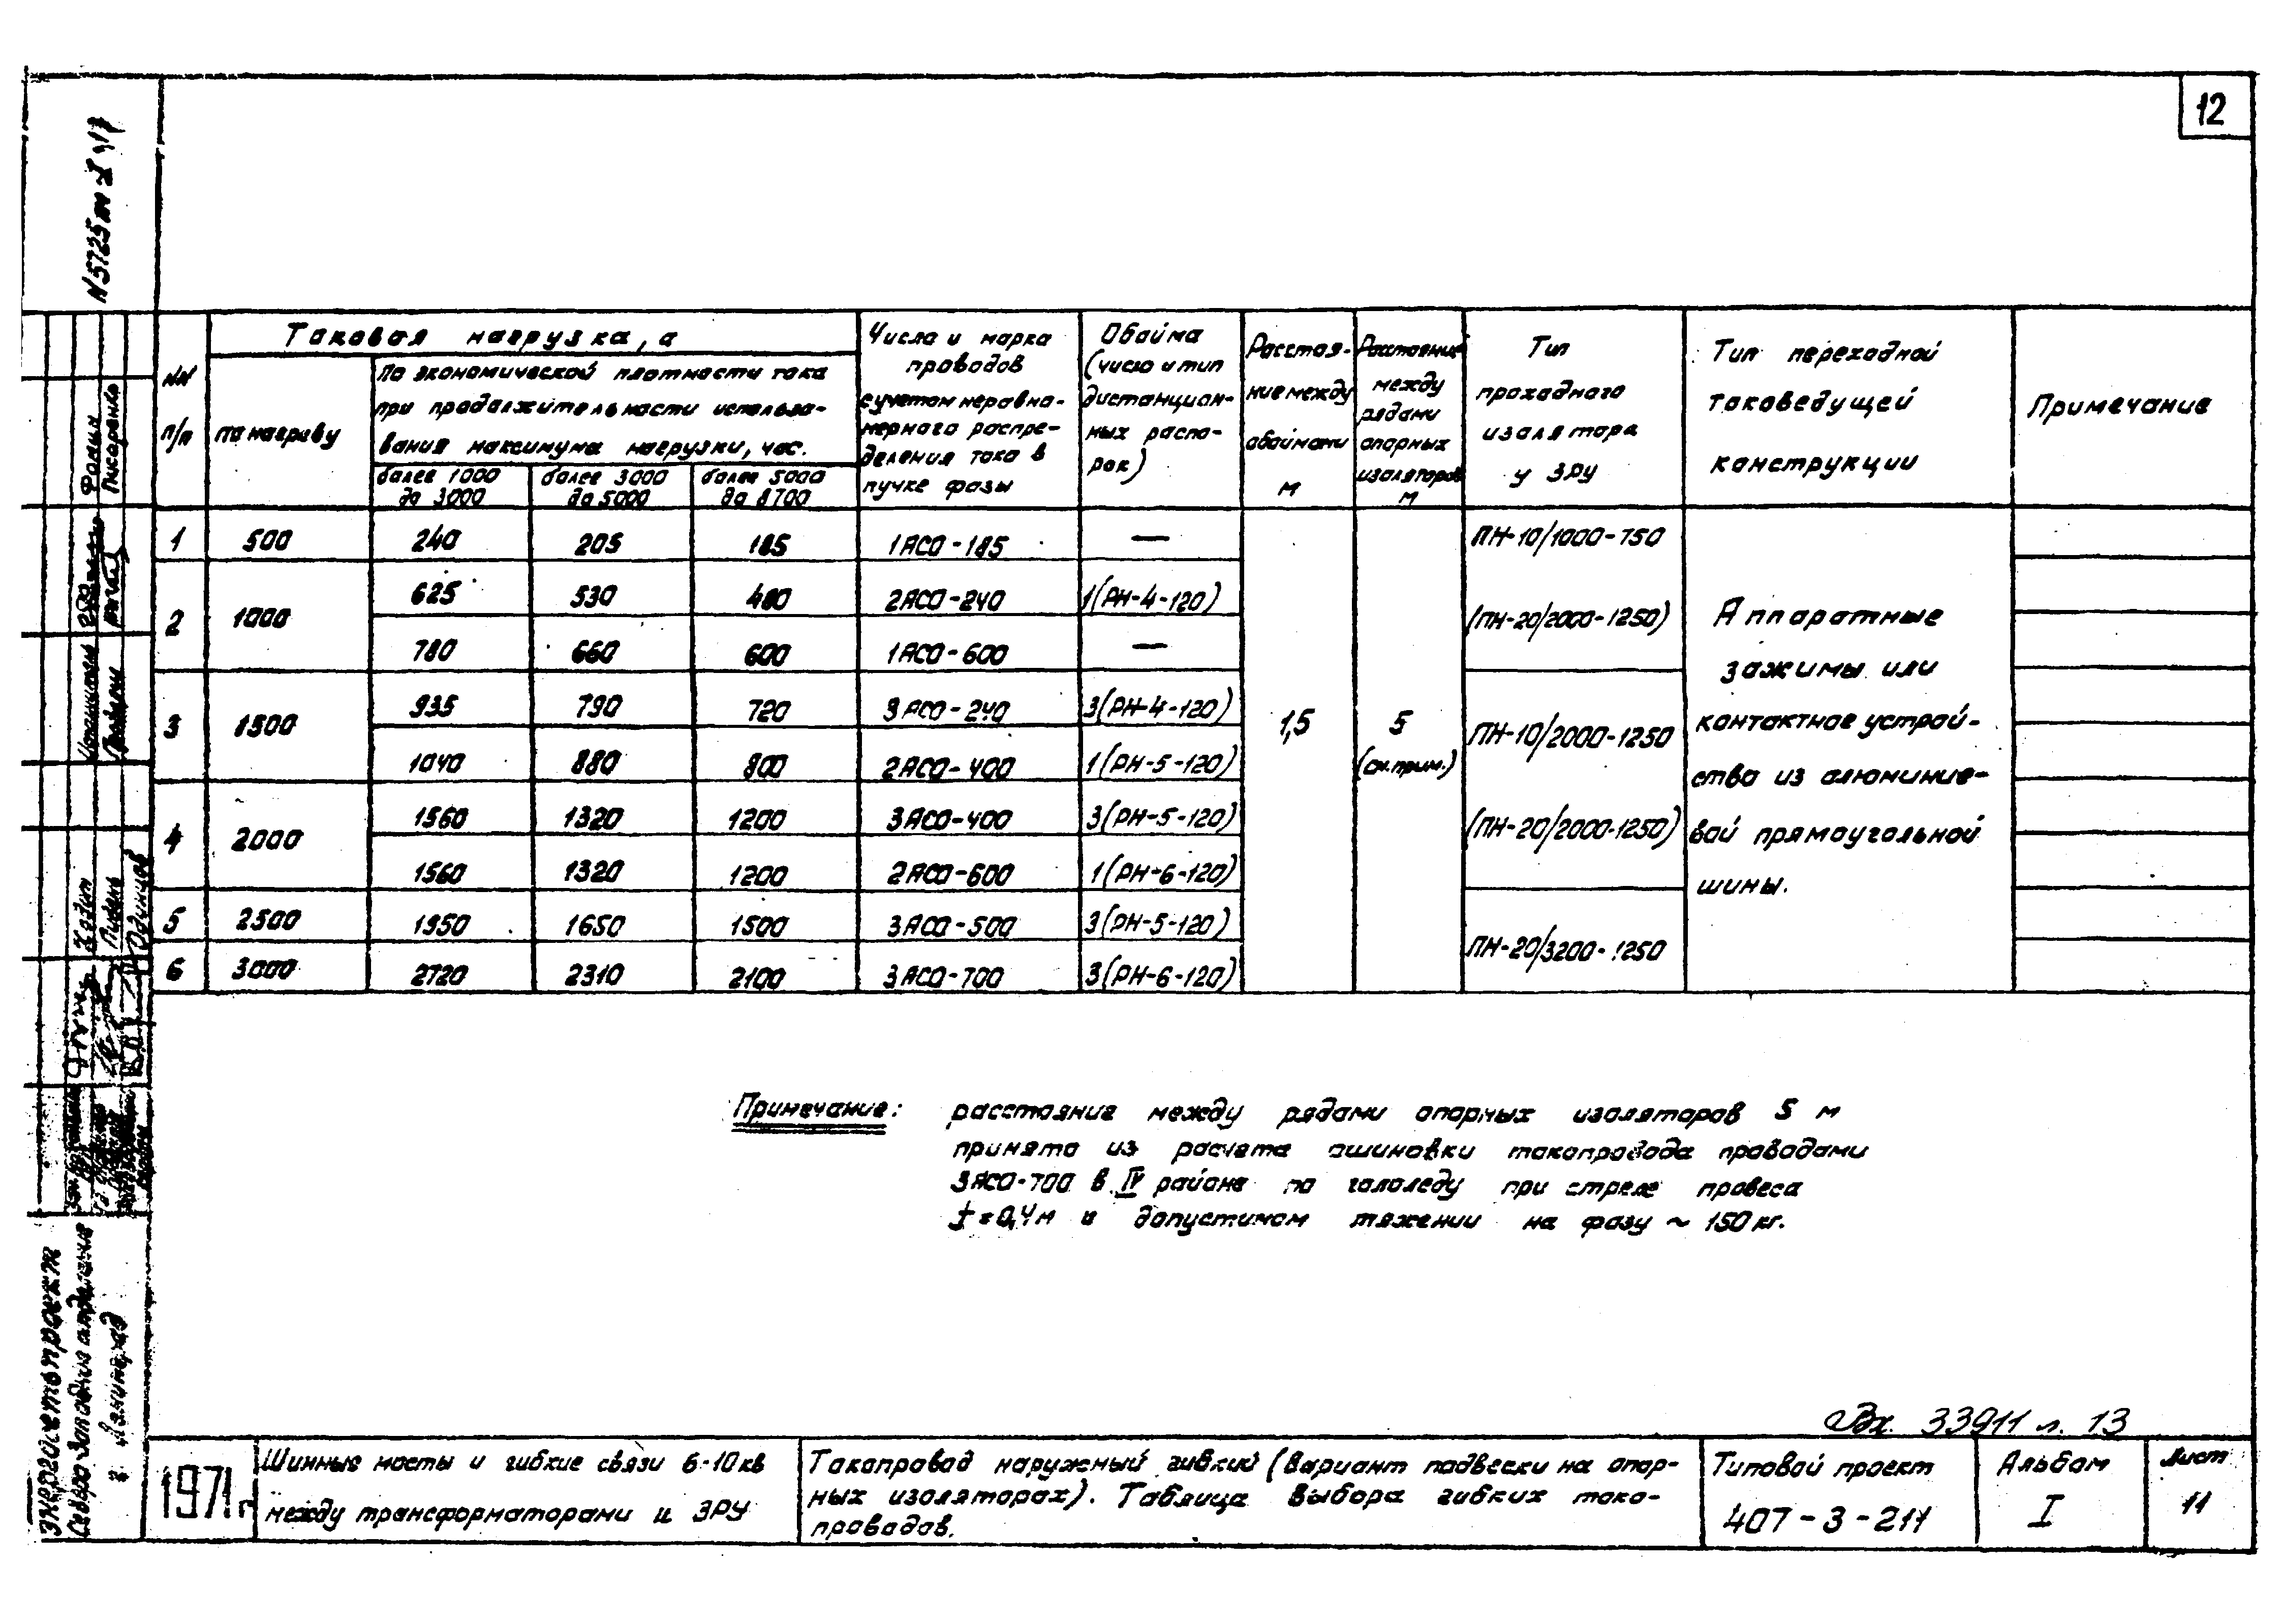 12
N5725тм
Токовая нагрузка, а
NN
п/п
по нагреву
По экономической плотности тока
при продолжительности использо-
вания максимума нагрузки, час.
более 1000
до 3000
более 3000
до 5000
более 5000
до 8700
Число и марка
проводов
с учетом неравно-
мерного распре-
деления тока в
пучке фазы
Обойма
(число и тип
дистанцион-
ных распо-
рок)
Расстоя-
ние между
обоймами
м
Расстояние
между
рядами
опорных
изоляторов
м
Тип
проходного
изолятора
у ЗРУ
Тип переходной
токоведущей
конструкции
Примечание
1 500 240 205 185 1АСО-185 —
2 1000 625 530 480 2АСО-240 1(РН-4-120)
780 660 600 1АСО-600 —
3 1500 935 790 720 3АСО-240 3(РН-4-120)
1040 880 800 2АСО-400 1(РН-5-120)
4 2000 1560 1320 1200 3АСО-400 3(РН-5-120)
1560 1320 1200 2АСО-600 1(РН-6-120)
5 2500 1950 1650 1500 3АСО-500 3(РН-5-120)
6 3000 2720 2310 2100 3АСО-700 3(РН-6-120)
1,5
5
(см.прим.)
ПН-10/1000-750
(ПН-20/2000-1250)
ПН-10/2000-1250
(ПН-20/2000-1250)
ПН-20/3200-1250
Аппаратные
зажимы или
контактное устрой-
ство из алюминие-
вой прямоугольной
шины.
Примечание: расстояние между рядами опорных изоляторов 5 м
принято из расчета ошиновки токопровода проводами
3АСО-700 в IV районе по гололеду при стреле провеса
f=0,4м и допустимом тяжении на фазу ~ 150 кг.
Вх. 33911 л. 13
Фомин
Писаренко
Одинцов
Энергосетьпроект
Северо-Западное отделение
г. Ленинград
1971г.
Шинные мосты и гибкие связи 6-10кв
между трансформаторами и ЗРУ
Токопровод наружный гибкий (вариант подвески на опор-
ных изоляторах). Таблица выбора гибких токо-
проводов.
Типовой проект
407-3-211
Альбом
I
Лист
11